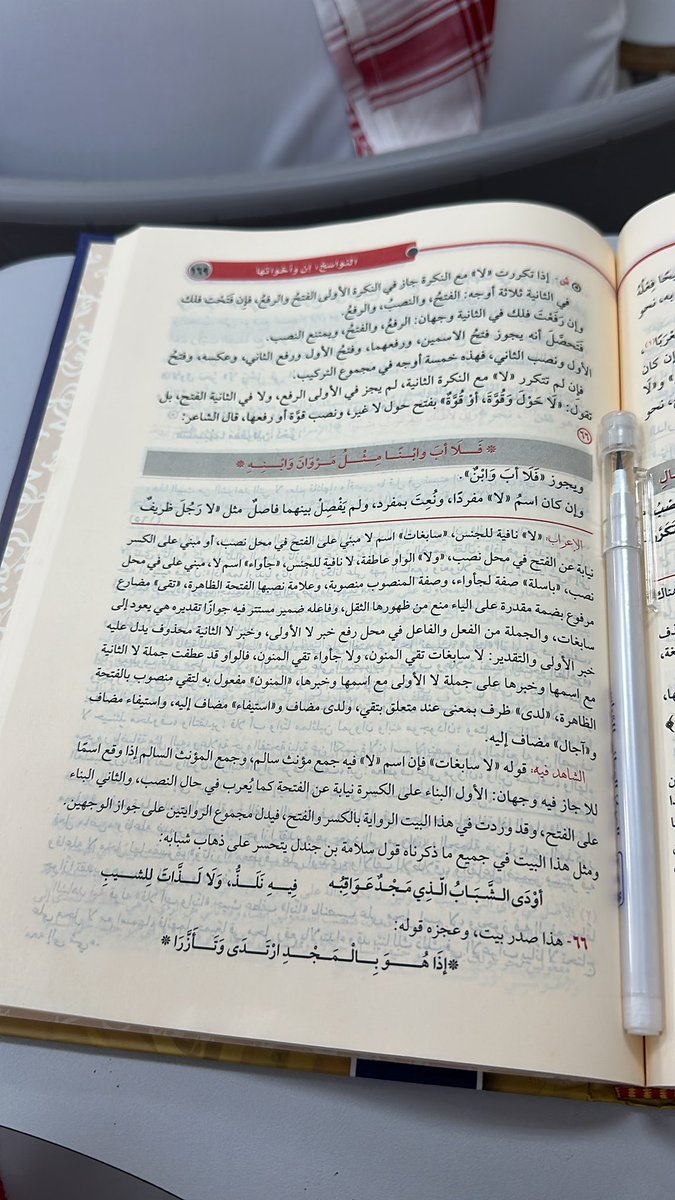 النواسخ: إن وأخواتها
١٦٩
ش- إذا تكررت «لا» مع النكرة جاز في النكرة الأولى الفتحُ والرفعُ، فإن فَتَحْتَ فلك
في الثانية ثلاثة أوجه: الفتحُ، والنصبُ، والرفعُ.
وإن رَفَعْتَ فلك في الثانية وجهان: الرفعُ، والفتحُ، ويمتنع النصب.
فَتَحصَّلَ أنه يجوز فتحُ الاسمين، ورفعهما، وفتحُ الأول ورفع الثاني، وعكسه، وفتحُ
الأول ونصب الثاني، فهذه خمسة أوجه في مجموع التركيب.
فإن لم تتكرر «لا» مع النكرة الثانية، لم يجز في الأولى الرفع، ولا في الثانية الفتح، بل
تقول: «لَا حَوْلَ وَقُوَّةً، أوْ قُوَّةٌ» بفتح حول لا غير، ونصب قوَّة أو رفعها، قال الشاعر:
٦٦
* فَلَا أبَ وَابْنًا مِثْلُ مَرْوَانَ وَابْنِهِ *
ويجوز «فَلَا أبَ وَابْنٌ».
وإن كان اسمُ «لا» مفردًا، ونُعِتَ بمفرد، ولم يَفْصِلْ بينهما فاصلٌ مثل «لا رَجُلَ ظريفٌ
الإعراب: «لا» نافية للجنس، «سابغات» اسم لا مبني على الفتح في محل نصب، أو مبني على الكسر
نيابة عن الفتح في محل نصب، «ولا» الواو عاطفة، لا نافية للجنس، «جأواء» اسم لا، مبني على في محل
نصب، «باسلة» صفة لجأواء، وصفة المنصوب منصوبة، وعلامة نصبها الفتحة الظاهرة، «تقي» مضارع
مرفوع بضمة مقدرة على الياء منع من ظهورها الثقل، وفاعله ضمير مستتر فيه جوازًا تقديره هي يعود إلى
سابغات، والجملة من الفعل والفاعل في محل رفع خبر لا الأولى، وخبر لا الثانية محذوف يدل عليه
خبر الأولى والتقدير: لا سابغات تقي المنون، ولا جأواء تقي المنون، فالواو قد عطفت جملة لا الثانية
مع اسمها وخبرها على جملة لا الأولى مع اسمها وخبرها، «المنون» مفعول به لتقي منصوب بالفتحة
الظاهرة، «لدى» ظرف بمعنى عند متعلق بتقي، ولدى مضاف و«استيفاء» مضاف إليه، واستيفاء مضاف
و«آجال» مضاف إليه.
الشاهد فيه: قوله «لا سابغات» فإن اسم «لا» فيه جمع مؤنث سالم، وجمع المؤنث السالم إذا وقع اسمًا
للا جاز فيه وجهان: الأول البناء على الكسرة نيابة عن الفتحة كما يُعرب في حال النصب، والثاني البناء
على الفتح، وقد وردت في هذا البيت الرواية بالكسر والفتح، فيدل مجموع الروايتين على جواز الوجهين.
ومثل هذا البيت في جميع ما ذكرناه قول سلامة بن جندل يتحسر على ذهاب شبابه:
أوْدَى الشَّبَابُ الَّذِي مَجْدٌ عَوَاقِبُهُ فِيهِ نَلَذُّ، وَلَا لَذَّاتَ لِلشِّيبِ
٦٦- هذا صدر بيت، وعجزه قوله:
* إذَا هُوَ بِالْمَجْدِ ارْتَدَى وَتَأَزَّرَا *